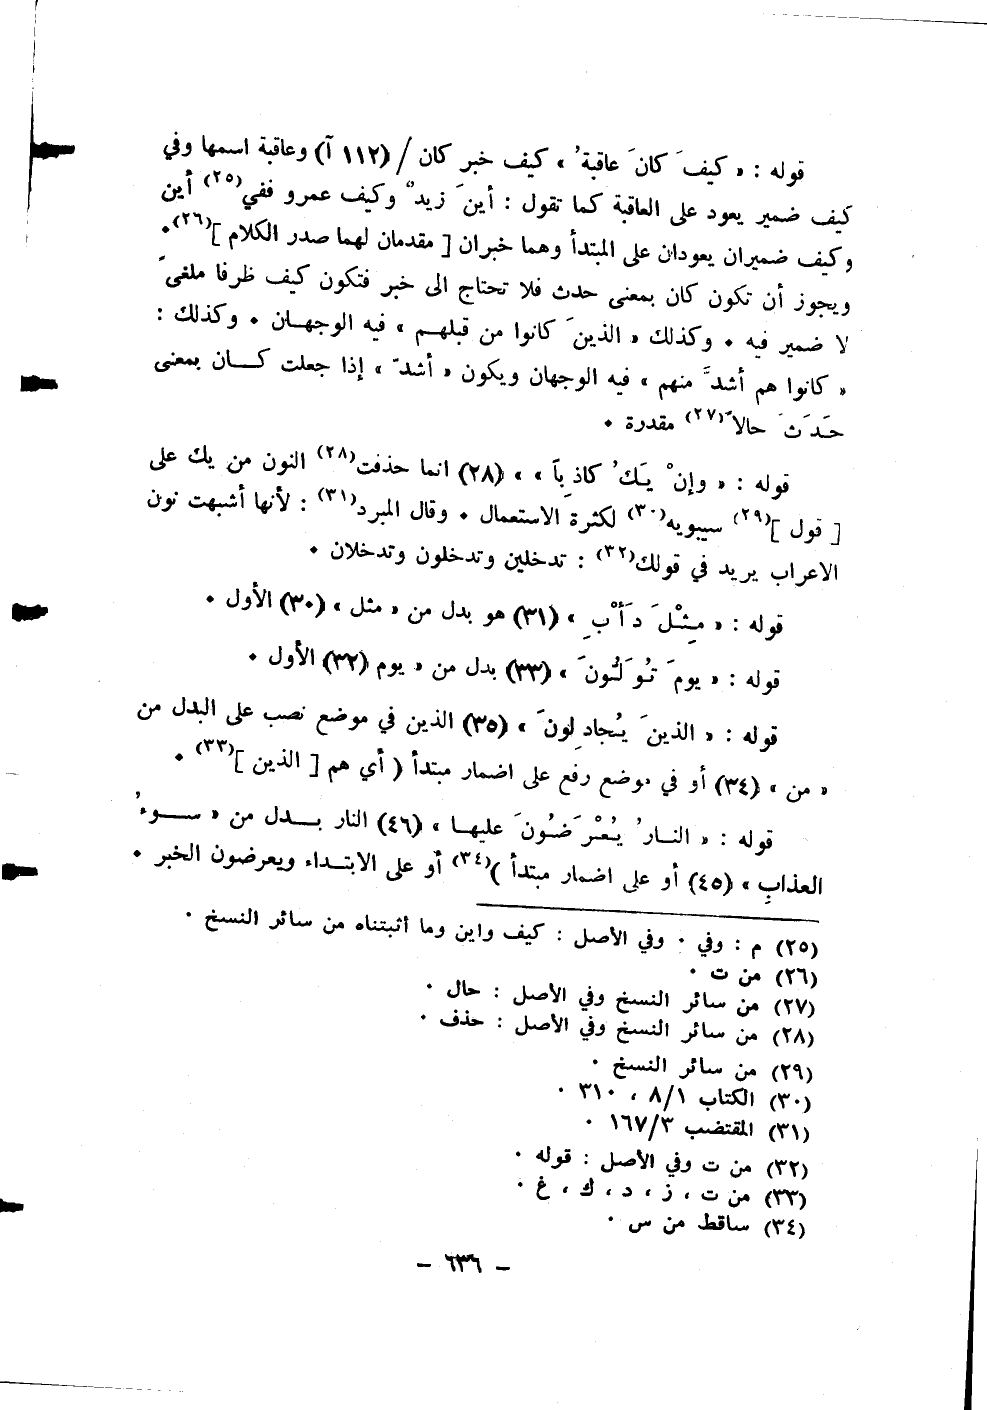 قوله : « كيفَ كانَ عاقبةُ » كيف خبر كان / (١١٢ آ) وعاقبة اسمها وفي
كيف ضمير يعود على العاقبة كما تقول : أينَ زيدٌ وكيف عمرو ففي(٢٥) أين
وكيف ضميران يعودان على المبتدأ وهما خبران [ مقدمان لهما صدر الكلام ](٢٦)٠
ويجوز أن تكون كان بمعنى حدث فلا تحتاج الى خبر فتكون كيف ظرفا ملغىً
لا ضمير فيه ٠ وكذلك « الذينَ كانوا من قبلهم » فيه الوجهان ٠ وكذلك :
« كانوا هم أشدَّ منهم » فيه الوجهان ويكون « أشدّ » إذا جعلت كان بمعنى
حَدَثَ حالاً(٢٧) مقدرة ٠
قوله : « وإنْ يَكُ كاذِباً » » (٢٨) انما حذفت(٢٨) النون من يك على
[ قول ](٢٩) سيبويه(٣٠) لكثرة الاستعمال ٠ وقال المبرد(٣١) : لأنها أشبهت نون
الاعراب يريد في قولك(٣٢) : تدخلين وتدخلون وتدخلان ٠
قوله : « مِثْلَ دَأْبِ » (٣١) هو بدل من « مثل » (٣٠) الأول ٠
قوله : « يومَ تُوَلُّونَ » (٣٣) بدل من « يوم (٣٢) الأول ٠
قوله : « الذينَ يُجادِلونَ » (٣٥) الذين في موضع نصب على البدل من
« من » (٣٤) أو في موضع رفع على اضمار مبتدأ ( أي هم [ الذين ](٣٣) ٠
قوله : « النارُ يُعْرَضُونَ عليها » (٤٦) النار بدل من « سوءُ
العذابِ » (٤٥) أو على اضمار مبتدأ )(٣٤) أو على الابتداء ويعرضون الخبر ٠
(٢٥) م : وفي ٠ وفي الأصل : كيف واين وما أثبتناه من سائر النسخ ٠
(٢٦) من ت ٠
(٢٧) من سائر النسخ وفي الأصل : حال ٠
(٢٨) من سائر النسخ وفي الأصل : حذف ٠
(٢٩) من سائر النسخ ٠
(٣٠) الكتاب ٨/١ ، ٣١٠ ٠
(٣١) المقتضب ١٦٧/٣ ٠
(٣٢) من ت وفي الأصل : قوله ٠
(٣٣) من ت ، ز ، د ، ك ، غ ٠
(٣٤) ساقط من س ٠
– ٦٣٦ –